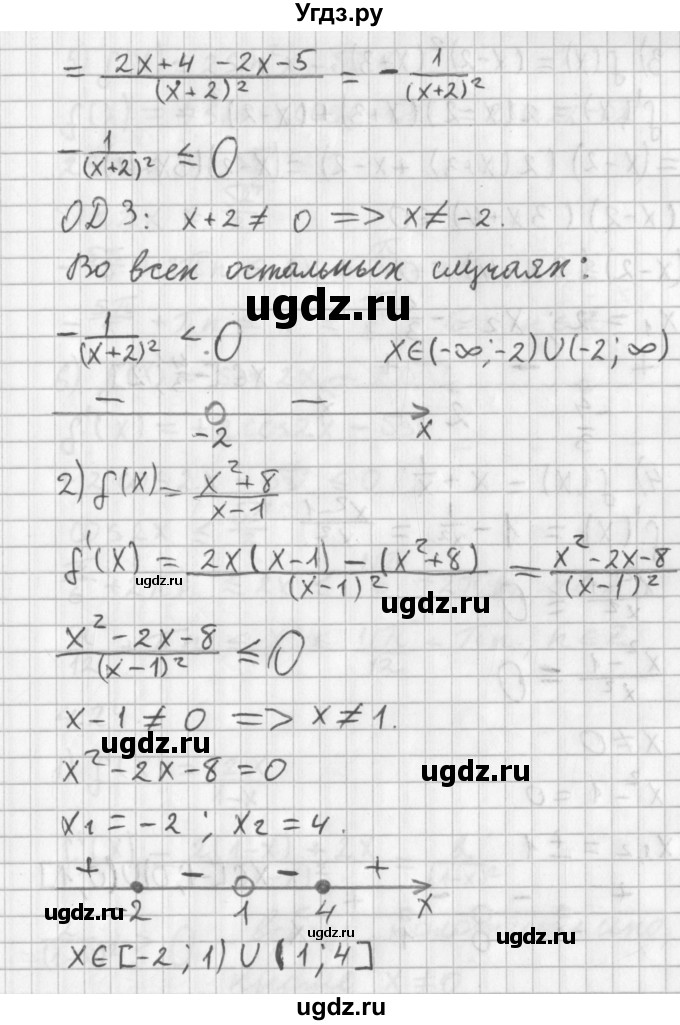 Угдз.ру
= (2x+4 -2x-5)/(x+2)² = - 1/(x+2)²
- 1/(x+2)² ≤ 0
ОДЗ: x+2 ≠ 0 => x ≠ -2.
Во всех остальных случаях:
ugdz.ru
- 1/(x+2)² < 0 x∈(-∞;-2)∪(-2;∞)
− −
-2 x
2) f(x) = (x²+8)/(x-1)
f'(x) = (2x(x-1) - (x²+8))/(x-1)² = (x²-2x-8)/(x-1)²
ugdz.ru
ugdz.ru
(x²-2x-8)/(x-1)² ≤ 0
x-1 ≠ 0 => x ≠ 1.
ugdz.ru
x²-2x-8=0
ugdz.ru
x1 = -2 ; x2 = 4.
+ - - +
-2 1 4 x
ugdz.ru
ugdz.ru
ugdz.ru
x∈[-2;1) ∪ (1;4]
ugdz.ru